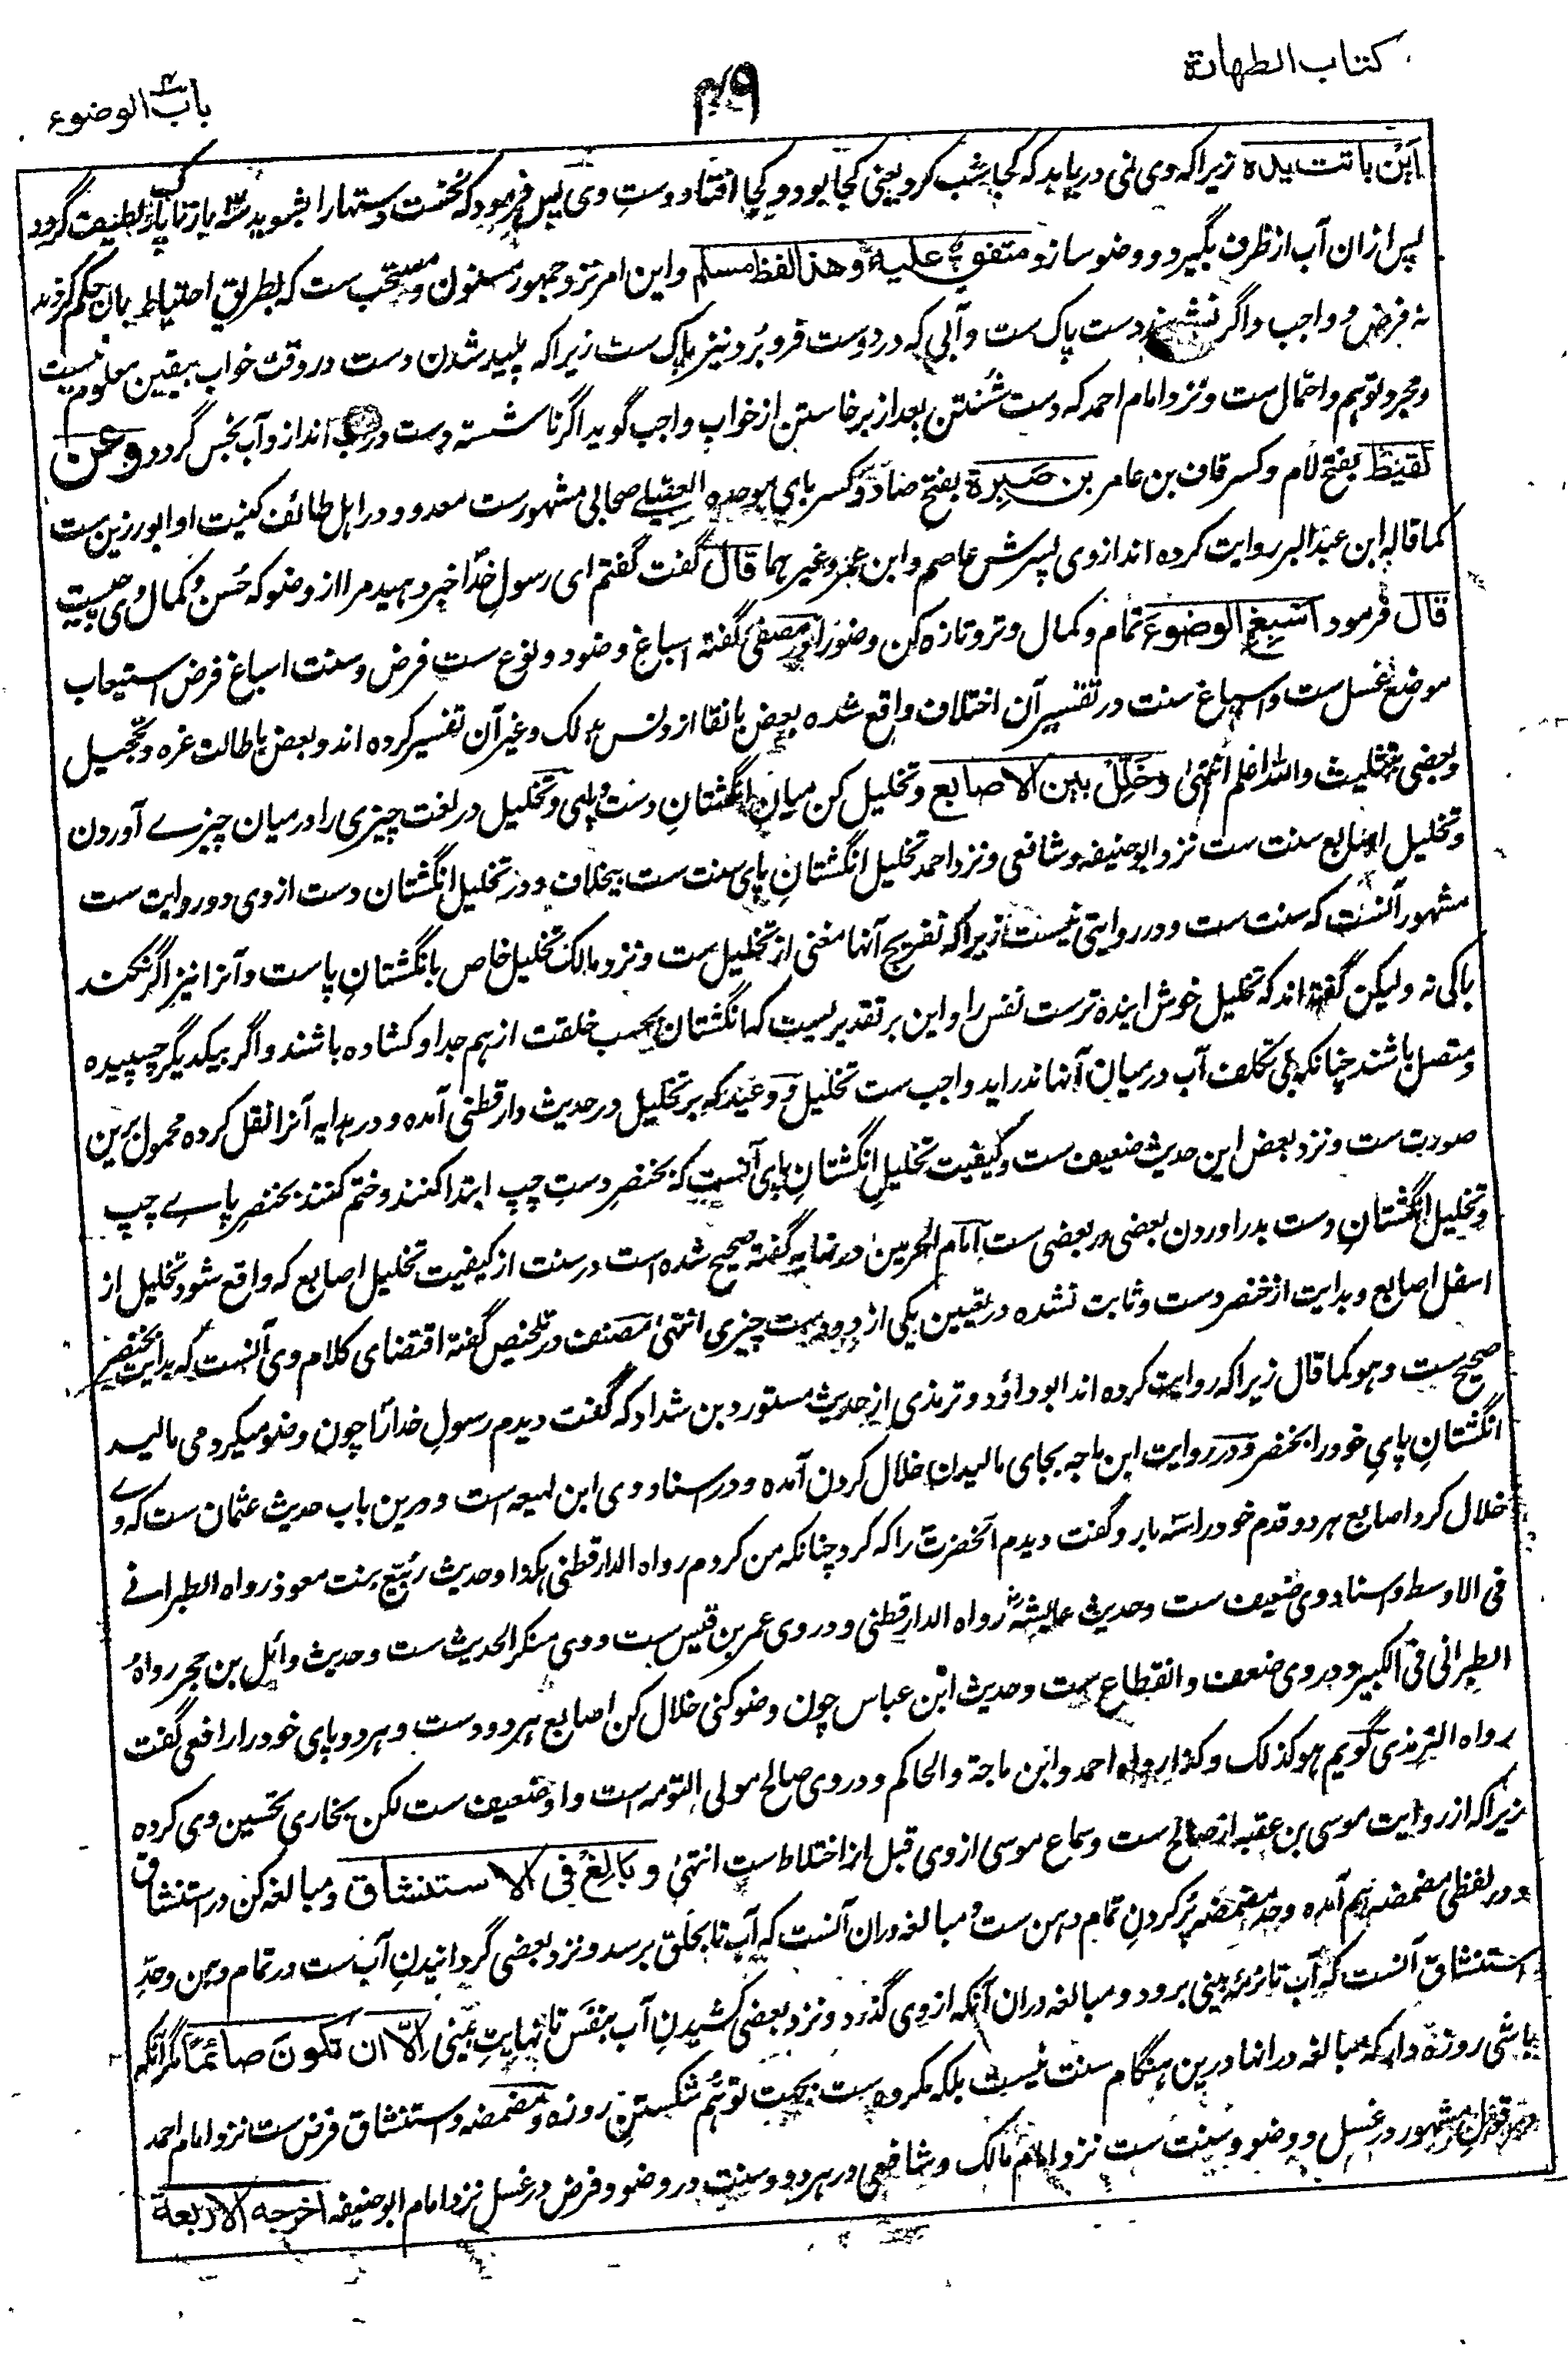 کتاب الطهارة
۴۹
باب الوضوء
اَیْنَ باتت یده زیرا که وی نمی دریابد که کجا شب کرد یعنی کجا بود و کجا افتاد دستِ وی پس فرمود که نخست دستها را بشوید سه بار تا پاک و نظیف گردد
پس ازان آب از ظرف بگیرد و وضو سازد متفق علیه وهذا لفظ مسلم و این امر نزد جمهور مسنون و مستحب ست که بطریق احتیاط بآن حکم کردند
نه فرض و واجب و اگر نشوید دست پاک ست و آبی که درو دست فرو برد نیز پاک ست زیرا که پلید شدن دست در وقت خواب بیقین معلوم نیست
و مجرد توهم و احتمال ست و نزد امام احمد که دست شستن بعد از برخاستن از خواب واجب گوید اگر ناشسته دست در آب اندازد آب نجس گردد وعن
لقیط بفتح لام و کسر قاف بن عامر بن صَبِرة بفتح صاد و کسر بای موحده العقیلے صحابی مشهور ست معدود در اهل طائف کنیت او ابو رزین ست
کما قاله ابن عبد البر روایت کرده اند از وی پسرش عاصم و ابن عمر و غیرهما قال گفت گفتم ای رسول خدا خبر دهید مرا از وضو که حُسن و کمال وی چیست
قال فرمود اَسْبِغِ الوضوءَ تمام و کمال و تر و تازه کن وضو را در مصفی گفته اسباغ وضو دو نوع ست فرض و سنت اسباغ فرض استیعاب
موضع غسل ست و اسباغ سنت در تفسیر آن اختلاف واقع شده بعض بانقا از دنس و دلک و غیر آن تفسیر کرده اند و بعض باطالت غره و تحجیل
و بعضی بتثلیث والله اعلم انتهیٰ وخَلِّلْ بین الاصابع و تخلیل کن میان انگشتان دست و پای و تخلیل در لغت چیزی را در میان چیزے آوردن
و تخلیل اصابع سنت ست نزد ابو حنیفه و شافعی و نزد احمد تخلیل انگشتانِ پای سنت ست بیخلاف و در تخلیل انگشتان دست از وی دو روایت ست
مشهور آنست که سنت ست و در روایتی نیست زیرا که تفریج آنها مغنی از تخلیل ست و نزد مالک تخلیل خاص بانگشتانِ پا ست و آنرا نیز اگر نکند
باکی نه و لیکن گفته اند که تخلیل خوش آینده تر ست نفس را و این بر تقدیریست که انگشتان بحسب خلقت از هم جدا و کشاده باشند و اگر بیکدیگر چسپیده
و متصل باشند چنانکه بی تکلف آب درمیان آنها ندراید واجب ست تخلیل و وعیدکه بر تخلیل در حدیث دارقطنی آمده و در هدایه آنرا نقل کرده محمول برین
صورت ست و نزد بعض این حدیث ضعیف ست و کیفیت تخلیل انگشتانِ پای آنست که بخنصر دستِ چپ ابتدا کنند و ختم کنند بخنصر پاے چپ
و تخلیل انگشتان دست بدراوردن بعضی در بعضی ست امام الحرمین در نهایه گفته صحیح شده است در سنت از کیفیت تخلیل اصابع که واقع شود تخلیل از
اسفل اصابع و بدایت از خنصر دست و ثابت نشده در تعیین یکی از دو دست چیزی انتهیٰ مصنف در تلخیص گفته اقتضای کلام وی آنست که بدایت بخنصر
صحیح ست و هو کما قال زیرا که روایت کرده اند ابو داؤد و ترمذی از حدیث مستورد بن شداد که گفت دیدم رسول خدا را چون وضو میکرد می مالید
انگشتانِ پای خود را بخنصر و در روایت ابن ماجه بجای مالیدن خلال کردن آمده و در اسناد وی ابن لهیعه است و درین باب حدیث عثمان ست که وے
خلال کرد اصابع هر دو قدم خود را سه بار و گفت دیدم آنحضرت را که کرد چنانکه من کردم رواه الدارقطنی هکذا و حدیث ربیّع بنت معوذ رواه الطبرانے
فی الاوسط و اسناد وی ضعیف ست و حدیث عایشه رواه الدارقطنی و در وی عمر بن قیس ست و وی منکر الحدیث ست و حدیث وائل بن حجر رواهُ
الطبرانی فی الکبیر و در وی ضعف و انقطاع ست و حدیث ابن عباس چون وضو کنی خلال کن اصابع هر دو دست و هر دو پای خود را رافعی گفت
رواه الترمذی گویم هو کذلک و کذا رواه احمد و ابن ماجة و الحاکم و در وی صالح مولی التومه است و او ضعیف ست لکن بخاری تحسین وی کرده
زیرا که از روایت موسی بن عقبه از صالح ست و سماع موسی از وی قبل از اختلاط ست انتهیٰ و بَالِغْ فی الاستنشاق و مبالغه کن در استنشاق
و در لفظی مضمضه هم آمده و حد مضمضه پُر کردنِ تمام دهن ست و مبالغه دران آنست که آب تا بحلق برسد و نزد بعضی گردانیدنِ آب ست در تمام دهن و حدِّ
استنشاق آنست که آب تا نرمهٔ بینی برود و مبالغه دران آنکه از وی گذرد و نزد بعضی کشیدنِ آب بنفَس تا نهایتِ بینی اِلّا ان تکونَ صائمًا مگر آنکه
باشی روزه دار که مبالغه درانها درین هنگام سنت نیست بلکه مکروه ست بجهت توهُّم شکستنِ روزه و مضمضه و استنشاق فرض ست نزد امام احمد
در قول مشهور در غسل و وضو و سنت ست نزد امام مالک و شافعی در هر دو و سنت در وضو و فرض در غسل نزد امام ابو حنیفه اخرجه الاربعة